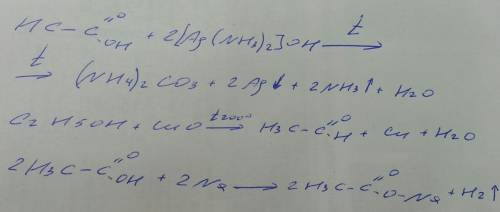 HC-C=O-OH + 2[Ag(NH3)2]OH t→
t→ (NH4)2CO3 + 2Ag↓ + 2NH3↑ + H2O
C2H5OH + CuO t200°→ H3C-C=O-H + Cu + H2O
2H3C-C=O-OH + 2Na → 2H3C-C=O-O-Na + H2↑